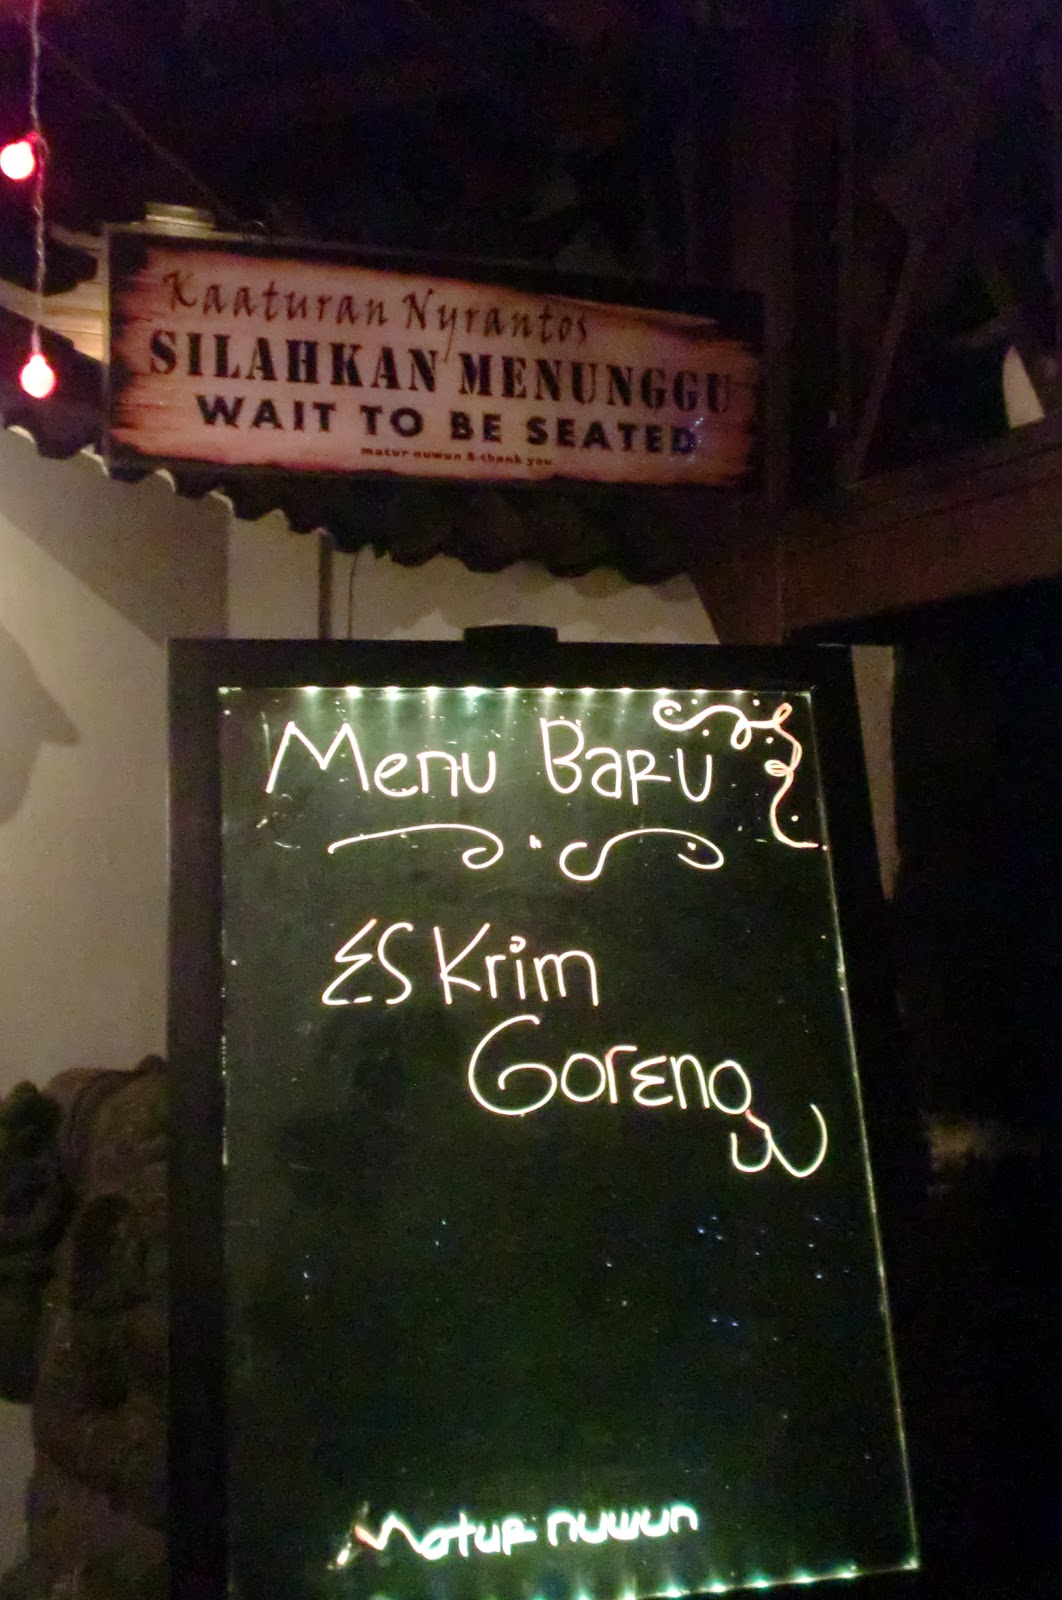 Kaaturan Nyrantos
SILAHKAN MENUNGGU
WAIT TO BE SEATED
matur nuwun & thank you
Menu Baru
Es Krim
Goreng
Matur nuwun